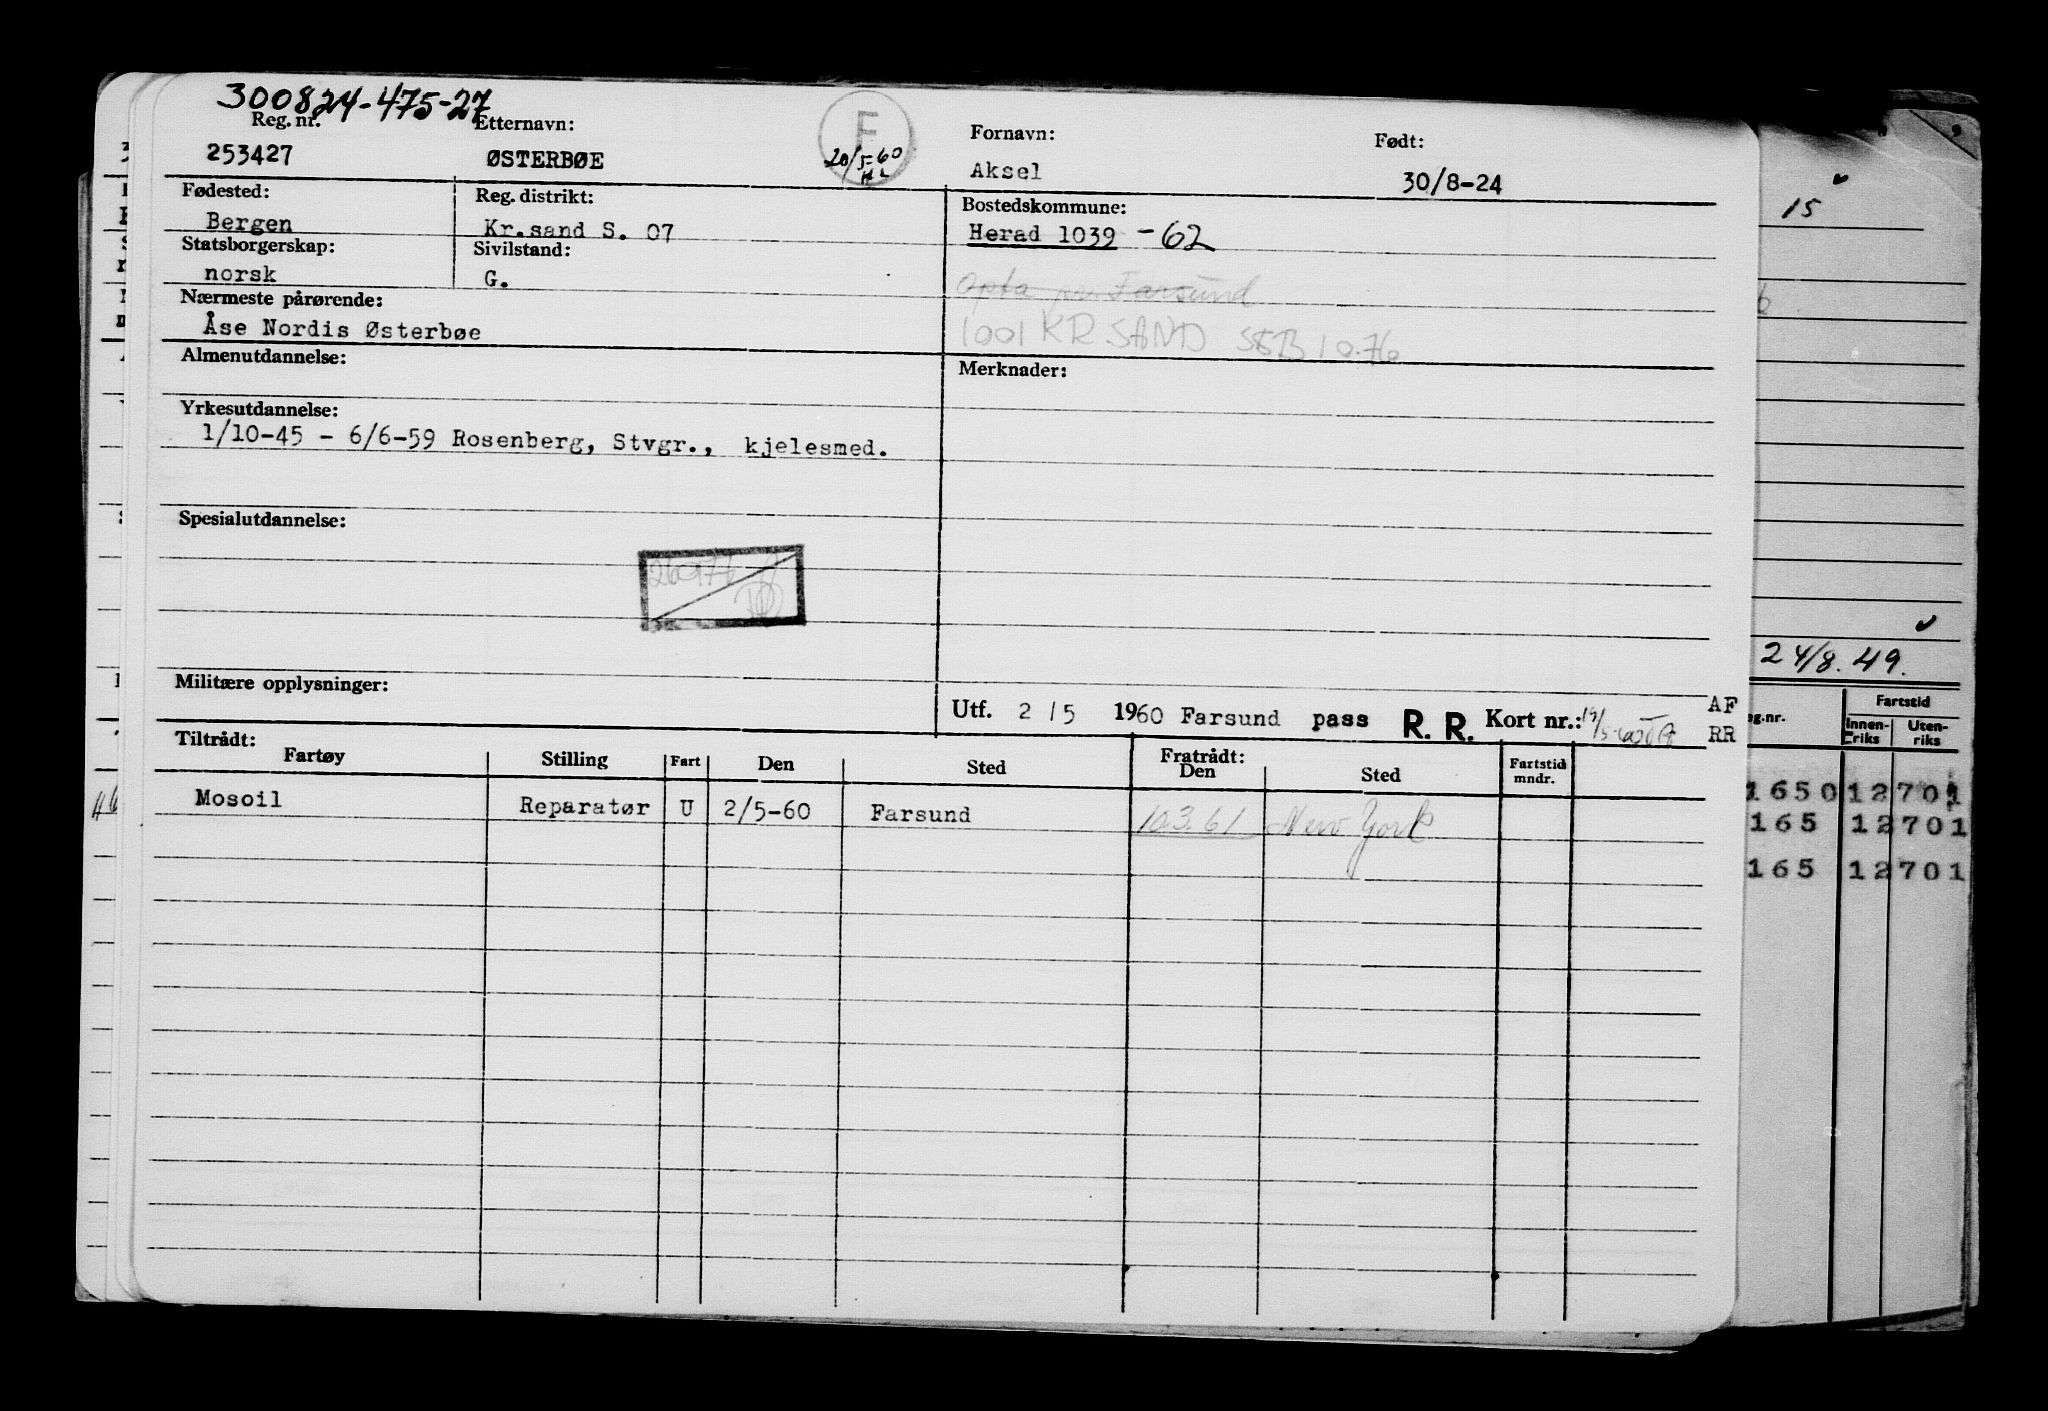 300824-475-27
Reg. nr. Etternavn: Fornavn: Født:
253427 ØSTERBØE F 20/5-60 Aksel 30/8-24
Fødested: Reg. distrikt: Bostedskommune:
Bergen Kr.sand S. 07 Herad 1039 -62
Statsborgerskap: Sivilstand:
norsk G. Opta pr. Farsund
Nærmeste pårørende:
Åse Nordis Østerbøe 1001 KR.SAND
Almenutdannelse: Merknader:
Yrkesutdannelse:
1/10-45 - 6/6-59 Rosenberg, Stvgr., kjelesmed.
Spesialutdannelse:
Militære opplysninger:
Utf. 2 / 5 1960 Farsund pass R. R. Kort nr.: AF
RR
Tiltrådt: Fratrådt:
Fartøy Stilling Fart Den Sted Den Sted Fartstid mndr.
Mosoil Reparatør U 2/5-60 Farsund 10.3.61 New York
15
24/8.49.
Fartstid
g.nr. Innen- Uten-
riks riks
1650 12 701
165 12 701
165 12 701